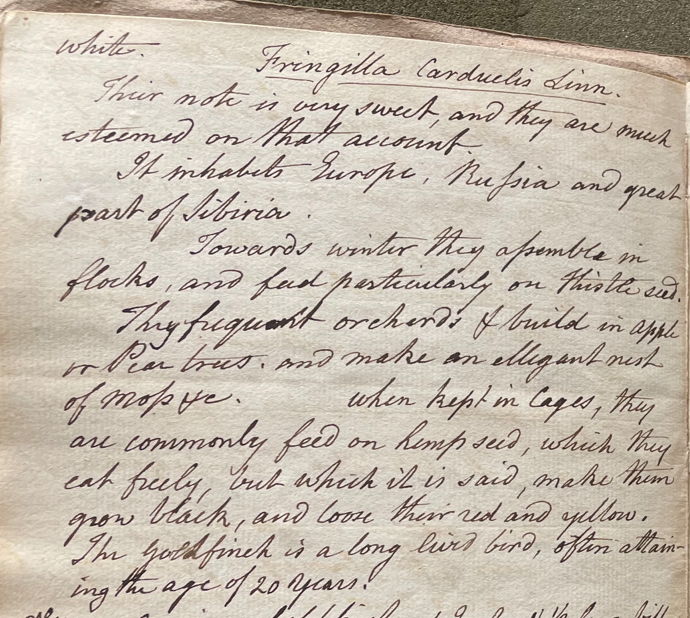 white.
Fringilla Carduelis Linn.
Their note is very sweet, and they are much
esteemed on that account.
It inhabits Europe, Russia and great
part of Sibiria.
Towards winter they assemble in
flocks, and feed particularly on thistle seed.
They frequent orchards & build in apple
or Pear trees. and make an ellegant nest
of Moss &c. when kept in Cages, they
are commonly feed on hempseed, which they
eat freely, but which it is said, make them
grow black, and loose their red and yellow.
The Goldfinch is a long livd bird, often attain-
ing the age of 20 Years.